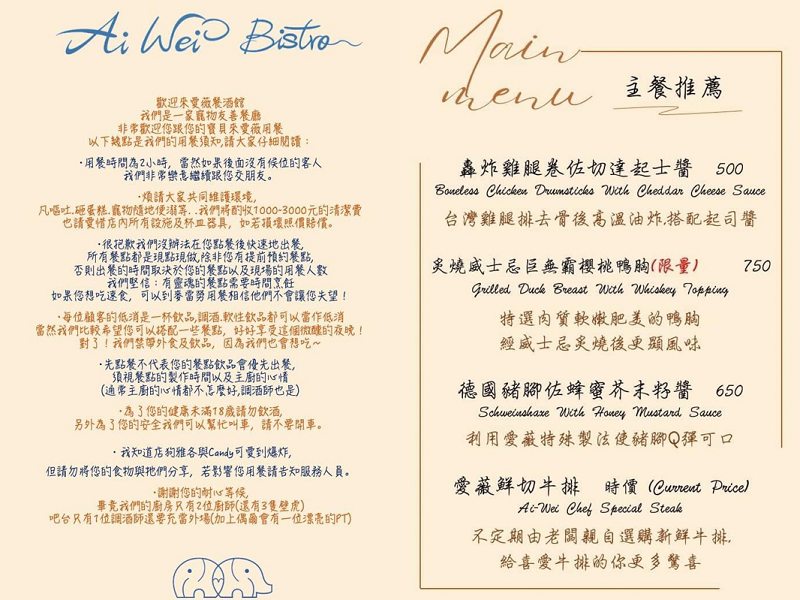 Ai Wei Bistro
歡迎來愛薇餐酒館
我們是一家寵物友善餐廳
非常歡迎您跟您的寶貝來愛薇用餐
以下幾點是我們的用餐須知,請大家仔細閱讀：
·用餐時間為2小時，當然如果後面沒有候位的客人
我們非常樂意繼續跟您交朋友。
·煩請大家共同維護環境,
凡嘔吐.砸蛋糕.寵物隨地便溺等..我們將酌收1000-3000元的清潔費
也請愛惜店內所有設施及杯皿器具，如若損壞照價賠償。
·很抱歉我們沒辦法在您點餐後快速地出餐,
所有餐點都是現點現做,除非您有提前預約餐點,
否則出餐的時間取決於您的餐點以及現場的用餐人數
我們堅信：有靈魂的餐點需要時間烹飪
如果您想吃速食，可以到麥當勞用餐相信他們不會讓您失望！
·每位顧客的低消是一杯飲品,調酒.軟性飲品都可以當作低消
當然我們比較希望您可以搭配一些餐點，好好享受這個微醺的夜晚！
對了！我們禁帶外食及飲品，因為我們也會想吃~
·先點餐不代表您的餐點飲品會優先出餐,
須視餐點的製作時間以及主廚的心情
(通常主廚的心情都不怎麼好,調酒師也是)
·為了您的健康未滿18歲請勿飲酒,
另外為了您的安全我們可以幫忙叫車，請不要開車。
·我知道店狗雅各與Candy可愛到爆炸,
但請勿將您的食物與牠們分享，若影響您用餐請告知服務人員。
·謝謝您的耐心等候,
畢竟我們的廚房只有2位廚師(還有3隻壁虎)
吧台只有1位調酒師還要充當外場(加上偶爾會有一位漂亮的PT)
Main
menu
主餐推薦
轟炸雞腿卷佐切達起士醬 500
Boneless Chicken Drumsticks With Cheddar Cheese Sauce
台灣雞腿排去骨後高溫油炸.搭配起司醬
炙燒威士忌巨無霸櫻桃鴨胸(限量) 750
Grilled Duck Breast With Whiskey Topping
特選肉質軟嫩肥美的鴨胸
經威士忌炙燒後更顯風味
德國豬腳佐蜂蜜芥末籽醬 650
Schweinshaxe With Honey Mustard Sauce
利用愛薇特殊製法使豬腳Q彈可口
愛薇鮮切牛排 時價 (Current Price)
Ai-Wei Chef Special Steak
不定期由老闆親自選購新鮮牛排,
給喜愛牛排的你更多驚喜